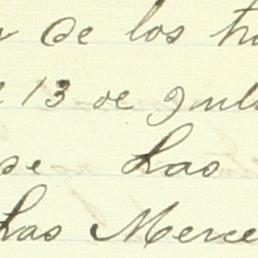 de los
13 de Julio
se has
has Merce